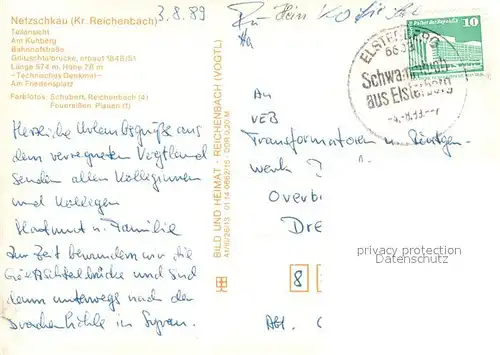 Netzschkau (Kr. Reichenbach)
Teilansicht
Am Kuhberg
Bahnhofstraße
Göltzschtalbrücke, erbaut 1846/51
Länge 574 m, Höhe 78 m
-Technisches Denkmal-
Am Friedensplatz
Farbfotos: Schubert, Reichenbach (4)
Feuereißen, Plauen (1)
3.8.89
Herzliche Urlaubsgrüße aus
dem verregneten Vogtland
senden allen Kolleginnen
und Kollegen
Hartmut u. Familie
Zur Zeit bewundern wir die
Göltzschtalbrücke und sind
dann unterwegs nach der
Drachenhöhle in Syrau.
BILD UND HEIMAT · REICHENBACH (VOGTL)
ELSTERBERG
Schwanenbad
aus Elsterberg
10
An
VEB
Transformatoren u. Röntgen-
werk
Overb
Dre
8
Abt.
privacy protection
Datenschutz